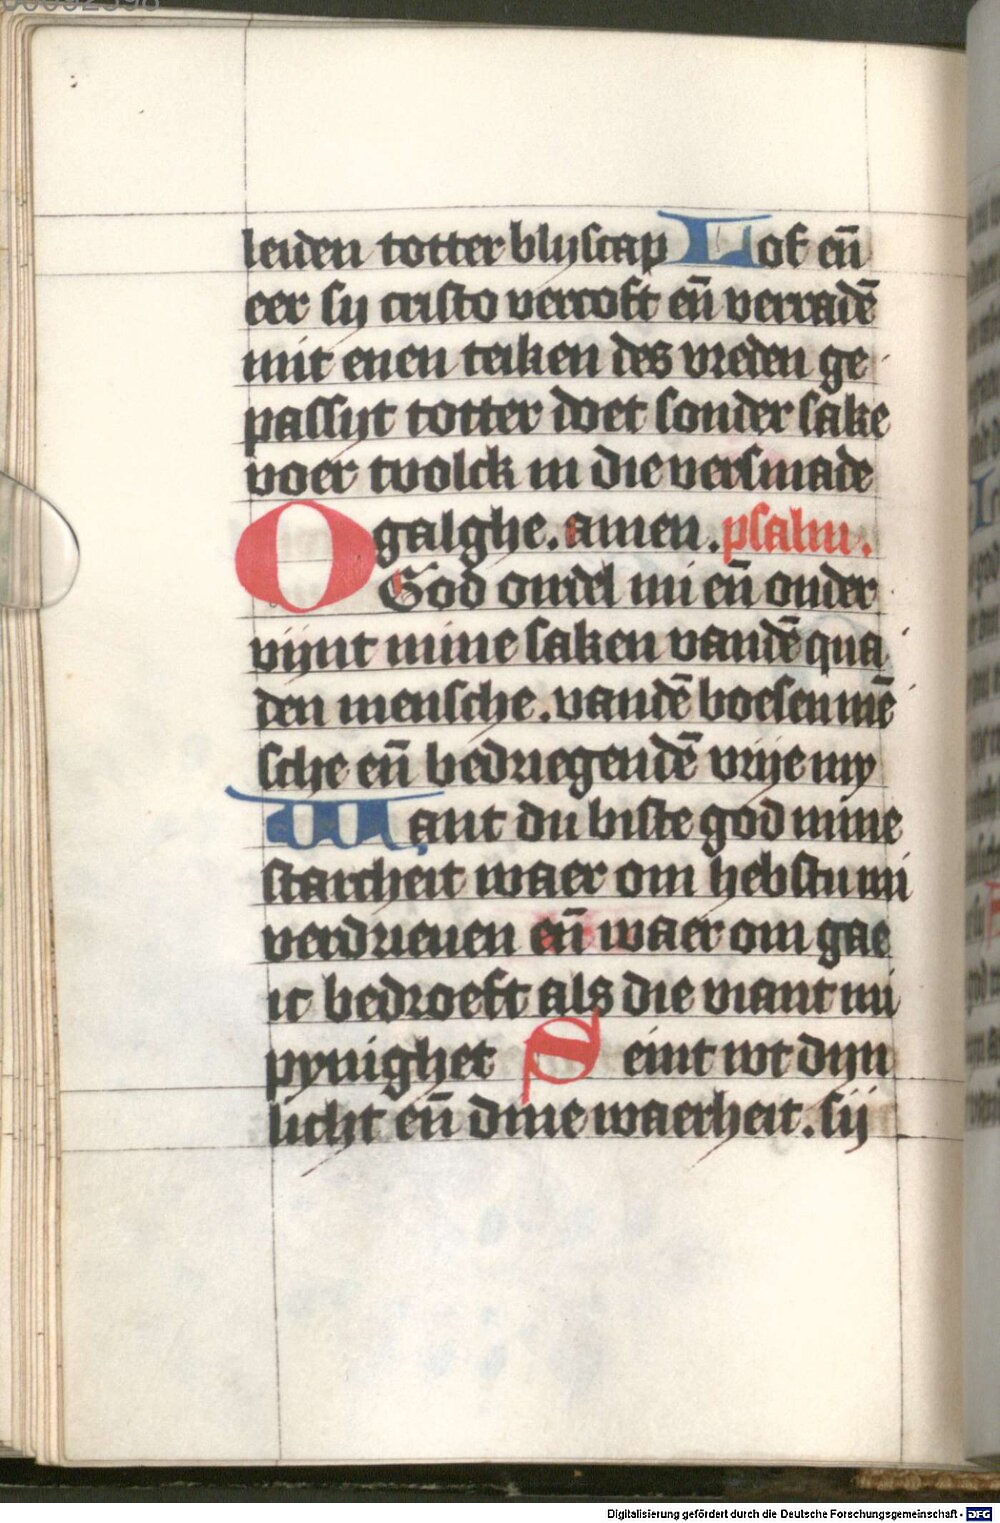 leiden totter blijscap Lof eñ
eer sij cristo vercoft eñ verradē
mit enen teiken des vreden ge
passijt totter doet sonder sake
voer tvolck in die versmade
galghe. amen. psalm.
O God ordel mi eñ onder
vijnt mine saken vandē qua
den mensche. vandē boesen mē
sche eñ bedriegendē vrije my
Want du biste god mine
starcheit waer om hebstu mi
verdrieuen eñ waer om gae
ic bedroeft als die viant mi
pynighet Seint wt dijn
licht eñ dine waerheit. sij
Digitalisierung gefördert durch die Deutsche Forschungsgemeinschaft - DFG